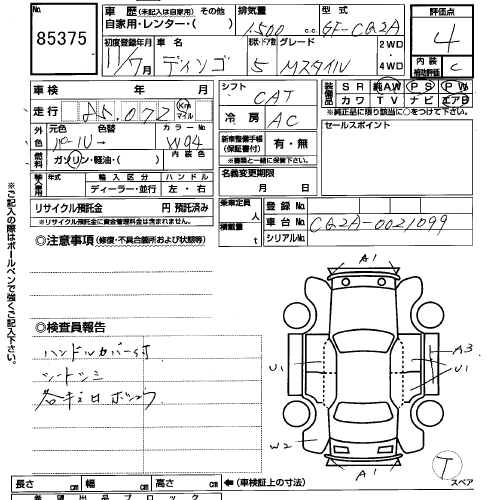 No.
85375
車歴(未記入は自家用) その他
自家用・レンタ・( )
排気量
1500 cc
型式
GF-CQ2A
評価点
4
初度登録年月
11/7月
車名
ディンゴ
形状・ドア数
5
グレード
Mスタイル
2WD
4WD
内装
補助評価
C
車検 年 月
シフト
CAT
装備品
SR 純AW PS PW
カワ TV ナビ エアB
※純正品に限り該当に○をつけて下さい。
走行
Km
マイル
冷房
AC
セールスポイント
外色
元色 色替
パール
カラーNo
W94
内装色
新車整備手帳
(保証書付)
有・無
※書類と一緒に保管下さい。
燃料
ガソリン・軽油・( )
輸入車用
年式 輸入区分 ハンドル
ディーラー・並行 左・右
名義変更期限
月 日
リサイクル預託金 円 預託済み
※リサイクル預託金に資金管理料金は含まれません。
乗車定員
人
積載量
t
登録No
車台No
CQ2A-0021099
シリアルNo
◎注意事項(修復・不具合箇所および状態等)
※ご記入の際はボールペンで強くご記入下さい。
◎検査員報告
ハンドルカバー付
シートシミ
A1
A3
U1
U1
W2
A1
T
スペア
長さ cm 幅 cm 高さ cm
(車検証上の寸法)
希望出品ブロック